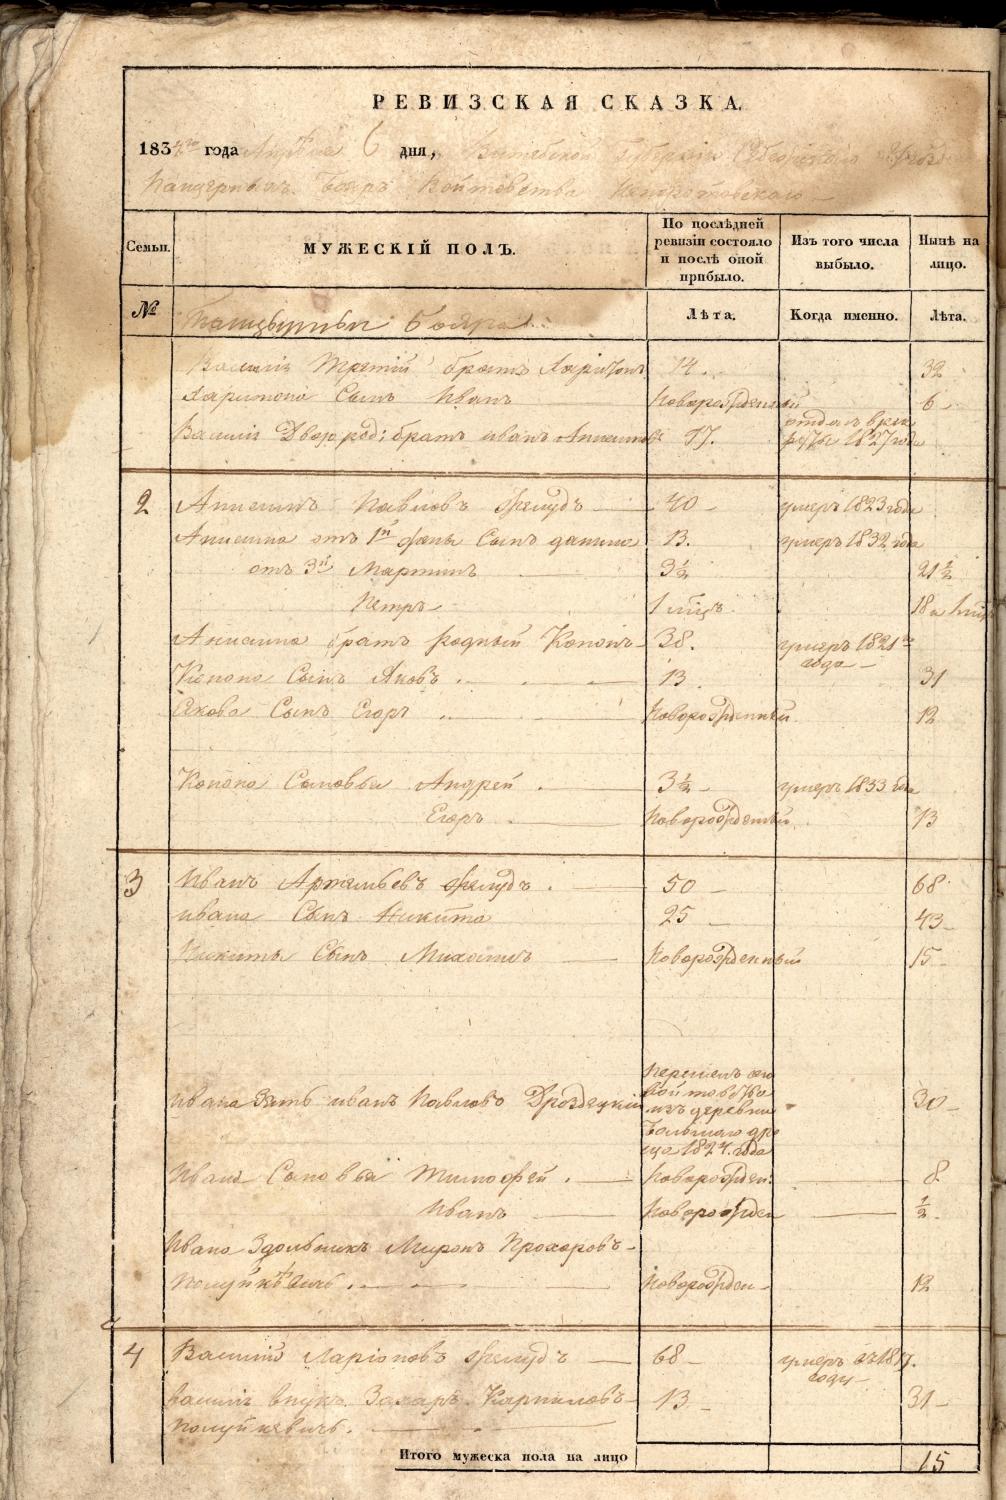 РЕВИЗСКАЯ СКАЗКА.
1834го года Апреля 6 дня, Витебской Губернiи Себежского уезда
Панцерныхъ Бояръ Войтовства
Семьи. МУЖЕСКIЙ ПОЛЪ. По послѣдней ревизiи состояло и послѣ оной прибыло. Изъ того числа выбыло. Нынѣ на лицо.
№ Панцырныи бояра Лѣта. Когда именно. Лѣта.
Василiя Третiй братъ Харитонъ 14. 32
Харитона Сынъ Иванъ Новорожденный 6
Василiя Двоюрод: братъ иванъ Анисимовъ 17. отданъ в рекруты 1827 года
2 Анисимъ Павловъ Желудъ 40 умеръ 1823 года
Анисима отъ 1й жены Сынъ данила 13. умеръ 1832 года
отъ 3й Мартинъ 3½ 21½
Петръ 1 мѣсъ 18 и 1 мѣсъ
Анисима братъ родный Кононъ 38. умеръ 1821го года
Конона Сынъ Яковъ 13 31
Якова Сынъ Егоръ Новорожденный 12
Конона Сыновья Андрей 3½ умеръ 1833 года
Егоръ Новорожденный 13
3 Иванъ Артемьевъ Желудъ 50 68
ивана Сынъ Никита 25 43
Никиты Сынъ Михаилъ Новорожденный 15
ивана Зять иванъ Павловъ Дроздецкiй 30
из деревни
1824. года
Ивана Сыновья Тимофей Новорожден: 8
Иванъ Новорожден ½
Ивана Здольникъ Миронъ Прохоровъ
Полуйкѣвичъ Новорожден 12
4 Василiй Ларiоновъ Желудъ 68 умеръ въ 1817. году
Василiя внукъ Захаръ Карниловъ 13 31
Полуйкевичъ.
Итого мужеска пола на лицо 15